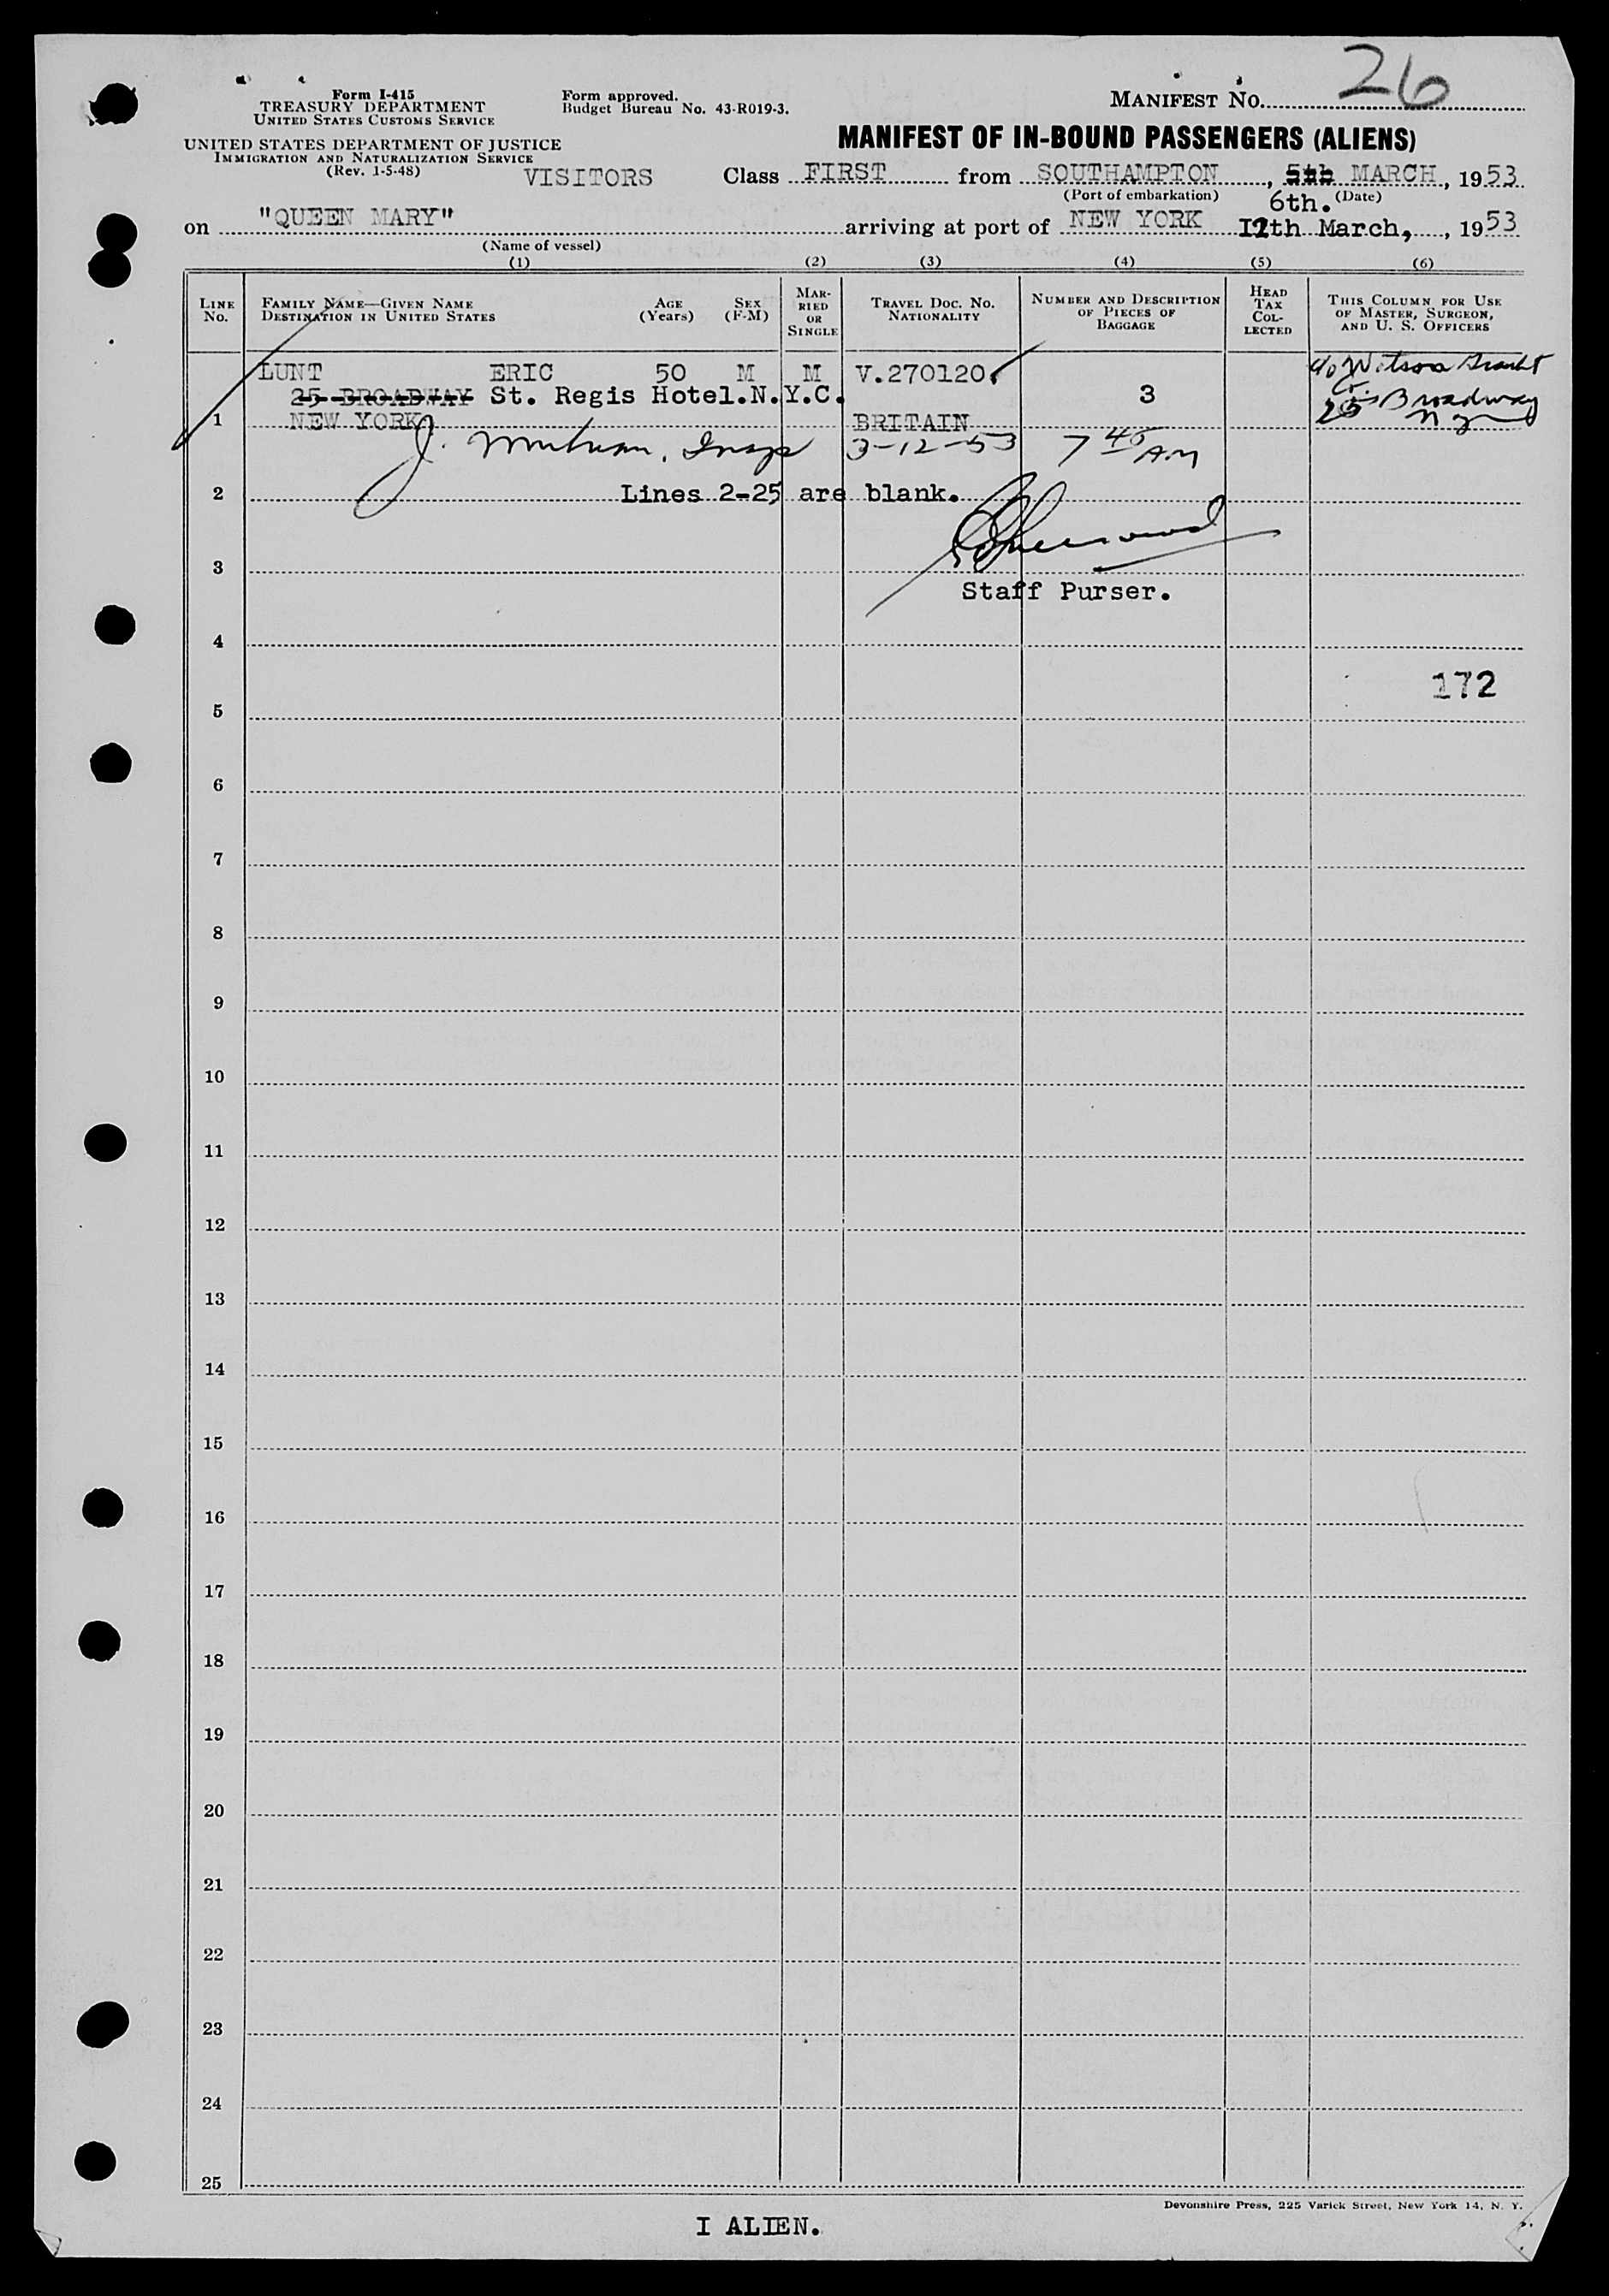 26
Form I-415
TREASURY DEPARTMENT
UNITED STATES CUSTOMS SERVICE
Form approved.
Budget Bureau No. 43-R019-3.
MANIFEST NO.
UNITED STATES DEPARTMENT OF JUSTICE
IMMIGRATION AND NATURALIZATION SERVICE
(Rev. 1-5-48)
MANIFEST OF IN-BOUND PASSENGERS (ALIENS)
VISITORS Class FIRST from SOUTHAMPTON, 5th MARCH, 1953
(Port of embarkation) 6th. (Date)
on "QUEEN MARY" arriving at port of NEW YORK 12th March, 1953
(Name of vessel)
(1) (2) (3) (4) (5) (6)
LINE NO.
FAMILY NAME—GIVEN NAME
DESTINATION IN UNITED STATES
AGE (Years)
SEX (F-M)
MARRIED OR SINGLE
TRAVEL DOC. NO.
NATIONALITY
NUMBER AND DESCRIPTION OF PIECES OF BAGGAGE
HEAD TAX COLLECTED
THIS COLUMN FOR USE OF MASTER, SURGEON, AND U. S. OFFICERS
LUNT ERIC 50 M M V.270120 c/o Watson
25 BROADWAY St. Regis Hotel.N.Y.C. 3 Co
1 NEW YORK BRITAIN 25 Broadway
N Y
J. Insp 3-12-53 7 45 AM
2 Lines 2-25 are blank.
3
Staff Purser.
4
172
5
6
7
8
9
10
11
12
13
14
15
16
17
18
19
20
21
22
23
24
25
Devonshire Press, 225 Varick Street, New York 14, N. Y.
I ALIEN.